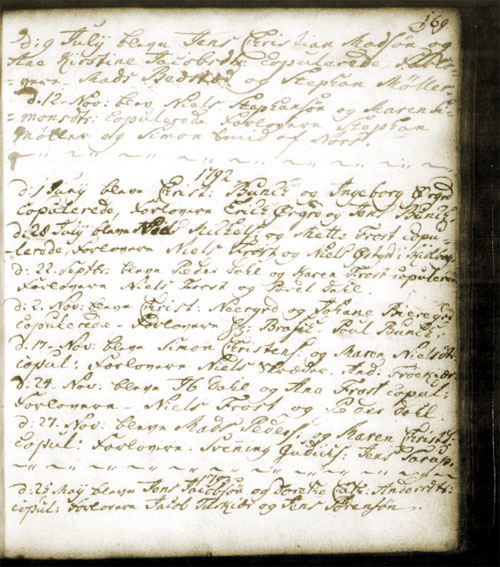 169
d: 9 Julij blevn Jens Christian Madsøn og
Ana Kirstine Jacobsdt: Copulerede. Forlo-
vern Mads Bedsted og Stephan Møller
d: 12 Nov: blev Niels Stephansøn og Maren Si-
monsdt: Copulerede Forlovern Stephan
Møller og Simon Smid af Nors.
1792
d: 1 Junij blevn Christ: Bunds og Ingeborg
Copulerede, Forlovern og Jens Bunds
d: 28 July blevn Niels og Mette Frost Copu-
lerede, Forlovern Niels Frost og Niels
d: 22 Septb: blevn Peder Dahl og Karen Frost Copulerede
Forlovern Niels Frost og Poul Dahl
d: 2. Nov: blevn Christ: og Johane
Copulerede – Forlovern Poul Bunds.
d: 17 Nov: blevn Simon Christens: og Maren Nielsdt:
Copul: Forlovern Niels And:
d: 24. Nov: blevn Ib Dahl og Ana Frost Copul:
Forlovern – Niels Frost og Peder Dahl
d: 27. Nov: blevn Mads Peders: og Maren Christd:
Copul: Forlovern: Svening Jens
1793
d: 25 Maij blevn Jens Jacobsøn og Dorethe Cath: Andersdt:
Copul: Forlovern Jacob og Jens Sørensøn